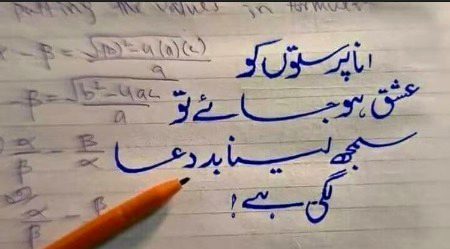 putting the values in formula
- β = √(b)²-4(a)(c) / a
- β = √b²-4ac / a
انا پرستوں کو
عشق ہو جائے تو
سمجھ لینا بددعا
لگی ہے!